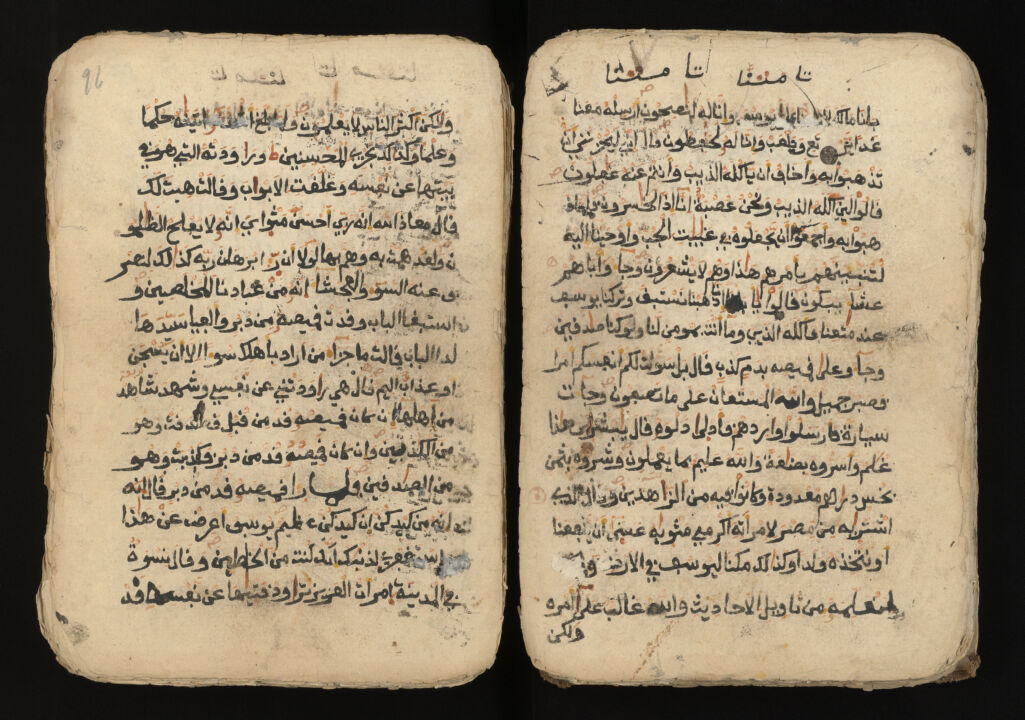 تا مننا تا مننا
يابانا مالك لا وانا له لنصحون ارسله معنا
غدا يرتع ويلعب وانا له لحفظون قال اني ليحزنني ان
تذهبوا به واخاف ان ياكله الذيب وانتم عنه غفلون
قالوا لين اكله الذيب ونحن عصبة انا اذا لخسرون فلما ذ
هبوا به واجمعوا ان يجعلوه في غيبت الجب واوحينا اليه
لتنبينهم بامرهم هذا وهم لا يشعرون وجا واباهم
عشا يبكون قالوا يابانا ذهبنا نستبق وتركنا يوسف
عند متعنا فاكله الذيب وما انت بمومن لنا ولو كنا صدقين
وجا و على قميصه بدم كذب قال بل سولت لكم انفسكم امرا
فصبر جميل والله المستعان على ما تصفون وجات
سيارة فارسلوا واردهم فادلى دلوه قال يبشرى هذا
غلم واسروه بضعة والله عليم بما يعملون وشروه بثمن
بخس درهم معدودة وكانوا فيه من الزاهدين وقال الذي
اشتريه من مصر لامراته اكرمي مثويه عسى ان ينفعنا
او نتخذه ولدا وكذلك مكنا ليوسف في الارض
ولنعلمه من تاويل الاحاديث والله غالب على امره
ولكن
96
تا مننا تا مننا
ولكن اكثر الناس لا يعلمون ولما بلغ اتينه حكما
وعلما وكذلك نجزي المحسنين وراودته التي هو في
بيتها عن نفسه وغلقت الابواب وقالت هيت لك
قال معاذ الله انه ربي احسن مثواي انه لا يفلح الظلمو
ن ولقد همت به وهم بها لولا ان را برهان ربه كذلك لنصر
ف عنه السو والفحشا انه من عبادنا المخلصين و
استبقا الباب وقدت قميصه من دبر والفيا سيدها
لدا الباب قالت ما جزا من اراد باهلك سوا الا ان يسجن
او عذاب اليم قال هي راودتني عن نفسي وشهد شاهد
من اهلها ان كان قميصه قد من قبل فصدقت وهو
من الكذبين وان كان قميصه قد من دبر فكذبت وهو
من الصدقين فلما را قميصه قد من دبر قال انه
من كيدكن ان كيدكن عظيم يوسف اعرض عن هذا
واستغفري لذنبك انك كنت من الخاطين وقال نسوة
في المدينة امرات العزيز تراود فتيها عن نفسه قد